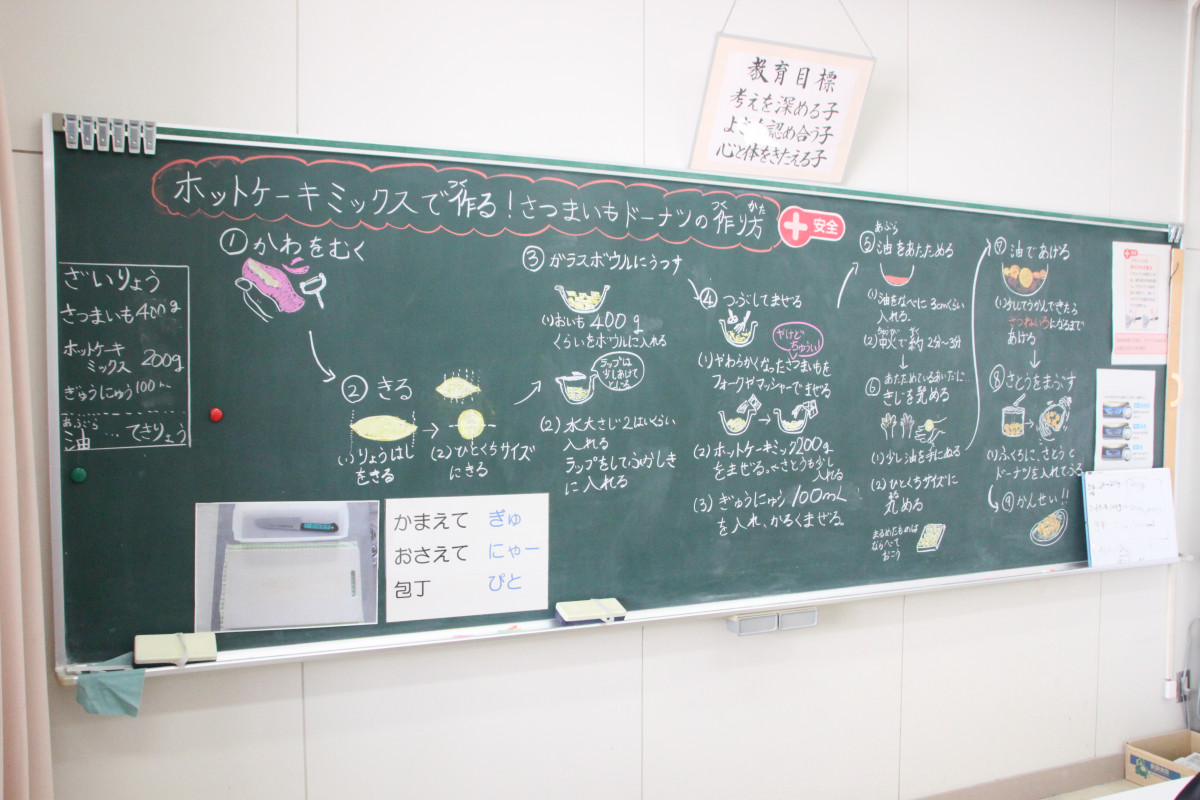 教育目標
考えを深める子
認め合う子
心と体をきたえる子
ホットケーキミックスで作る！さつまいもドーナツの作り方
つく
つく かた
安全
ざいりょう
さつまいも400g
ホットケーキ
ミックス 200g
ぎゅうにゅう100
あぶら
油…てきりょう
①かわをむく
②きる
(1)りょうはし
をきる
(2)ひとくちサイズ
にきる
③ガラスボウルにうつす
(1)おいも400g
くらいをボウルに入れる
ラップは
少しあけて
とじる
(2)水大さじ2はいくらい
入れる
ラップをして
に入れる
④つぶしてまぜる
やけど
ちゅうい
(1)やわらかくなったさつまいもを
フォークやマッシャーでまぜる
(2)ホットケーキミックス200g
をまぜる。←さとうも少し
入れる
(3)ぎゅうにゅう100mL
を入れ、かるくまぜる。
あぶら
⑤油をあたためる
(1)油をなべに3cmくらい
入れる。
(2)中火で約2分〜3分
⑥あたためているあいだに…
きじを丸める
(1)少し油を手にぬる
(2)ひとくちサイズに
丸める
まるめたものは
ならべて
おこう
⑦油であげる
きつねいろになるまで
あげる
⑧さとうをまぶす
(1)ふくろに、さとうと
ドーナツを入れてふる
⑨かんせい!!
かまえて ぎゅ
おさえて にゃー
包丁 ぴと